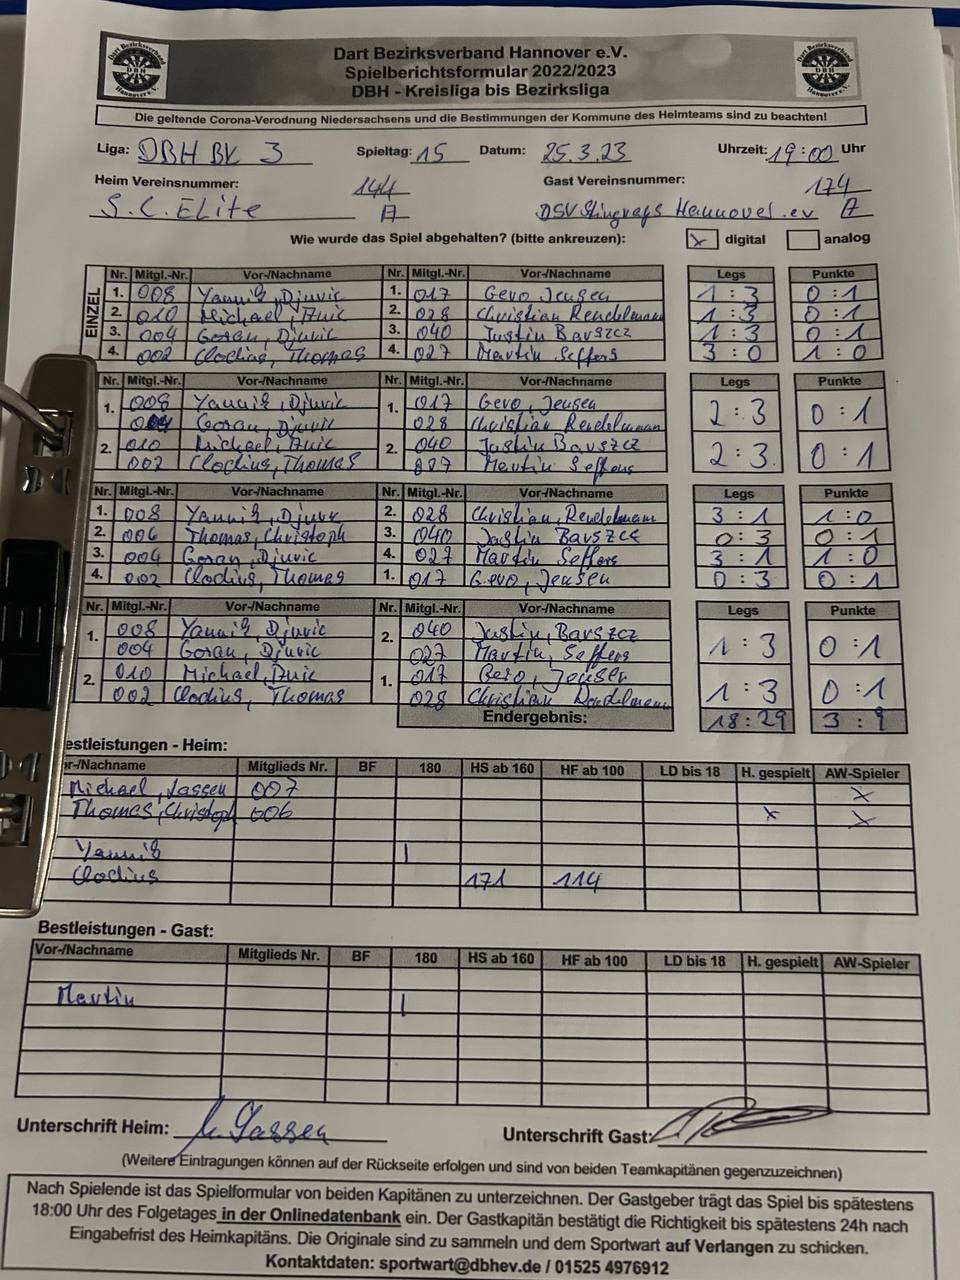 Dart Bezirksverband Hannover e.V.
Spielberichtsformular 2022/2023
DBH - Kreisliga bis Bezirksliga
Die geltende Corona-Verodnung Niedersachsens und die Bestimmungen der Kommune des Heimteams sind zu beachten!
Liga: DBH BK 3 Spieltag: 15 Datum: 25.3.23 Uhrzeit: 19:00 Uhr
Heim Vereinsnummer: 144 Gast Vereinsnummer: 174
S.C. Elite A DSV Stingrays Hannover e.v A
Wie wurde das Spiel abgehalten? (bitte ankreuzen): x digital analog
EINZEL
Nr. Mitgl.-Nr. Vor-/Nachname Nr. Mitgl.-Nr. Vor-/Nachname Legs Punkte
1. 008 Yannik, Djuvic 1. 017 Gevo Jensen 1 : 3 0 : 1
2. 010 Michael, 2. 028 Christian Rendelmann 1 : 3 0 : 1
3. 004 Goran, Djuvic 3. 040 Justin Barszcz 1 : 3 0 : 1
4. 002 Clodius, Thomas 4. 027 Martin Seffers 3 : 0 1 : 0
Nr. Mitgl.-Nr. Vor-/Nachname Nr. Mitgl.-Nr. Vor-/Nachname Legs Punkte
1. 008 Yannik, Djuvic 1. 017 Gevo, Jensen 2 : 3 0 : 1
004 Goran, Djuvic 028 Christian Rendelmann
2. 010 Michael, 2. 040 Justin Barszcz 2 : 3 0 : 1
002 Clodius, Thomas 027 Martin Seffers
Nr. Mitgl.-Nr. Vor-/Nachname Nr. Mitgl.-Nr. Vor-/Nachname Legs Punkte
1. 008 Yannik, Djuvic 2. 028 Christian, Rendelmann 3 : 1 1 : 0
2. 006 Thomas, Christoph 3. 040 Justin Barszcz 0 : 3 0 : 1
3. 004 Goran, Djuvic 4. 027 Martin Seffers 3 : 1 1 : 0
4. 002 Clodius, Thomas 1. 017 Gevo, Jensen 0 : 3 0 : 1
Nr. Mitgl.-Nr. Vor-/Nachname Nr. Mitgl.-Nr. Vor-/Nachname Legs Punkte
1. 008 Yannik, Djuvic 2. 040 Justin, Barszcz 1 : 3 0 : 1
004 Goran, Djuvic 027 Martin, Seffers
2. 010 Michael, 1. 017 Gero, Jensen 1 : 3 0 : 1
002 Clodius, Thomas 028 Christian Rendelmann
Endergebnis: 18 : 29 3 : 9
estleistungen - Heim:
or-/Nachname Mitglieds Nr. BF 180 HS ab 160 HF ab 100 LD bis 18 H. gespielt AW-Spieler
Michael, Lassen 007 x
Thomas, Christoph 006 x x
Yannik |
Clodius 171 114
Bestleistungen - Gast:
Vor-/Nachname Mitglieds Nr. BF 180 HS ab 160 HF ab 100 LD bis 18 H. gespielt AW-Spieler
Martin |
Unterschrift Heim: M. Lassen Unterschrift Gast:
(Weitere Eintragungen können auf der Rückseite erfolgen und sind von beiden Teamkapitänen gegenzuzeichnen)
Nach Spielende ist das Spielformular von beiden Kapitänen zu unterzeichnen. Der Gastgeber trägt das Spiel bis spätestens
18:00 Uhr des Folgetages in der Onlinedatenbank ein. Der Gastkapitän bestätigt die Richtigkeit bis spätestens 24h nach
Eingabefrist des Heimkapitäns. Die Originale sind zu sammeln und dem Sportwart auf Verlangen zu schicken.
Kontaktdaten: sportwart@dbhev.de / 01525 4976912